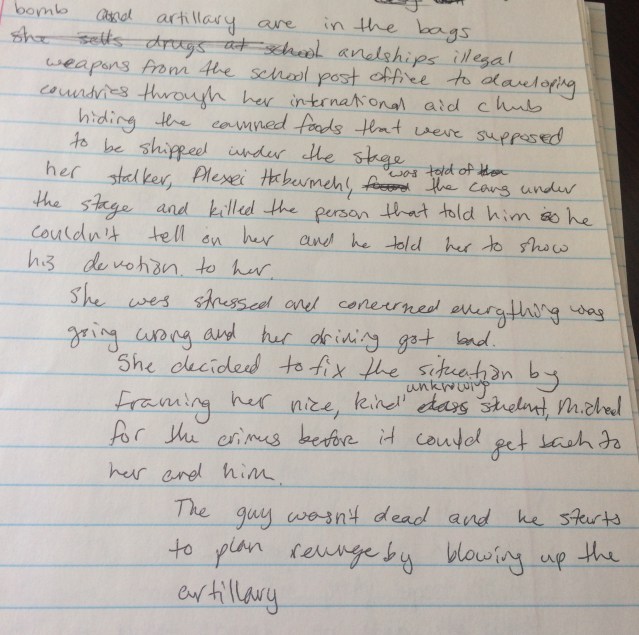 bomb and artillary are in the bags
she sells drugs at school andships illegal
weapons from the school post office to daveloping
countries through her international aid chub
hiding the canned foods that were supposed
to be shipped under the stage
was told of the
her stalker, Alexei Habermehl, found the cans under
the stage and killed the person that told him so he
couldn't tell on her and he told her to show
his devotion to her.
She was stressed and concerned everything was
going wrong and her drining got bad.
She decided to fix the situation by
unknowing
Framing her nice, kind class student, Michael
for the crimes before it could get back to
her and him.
The guy wasn't dead and he starts
to plan revenge by blowing up the
artillary